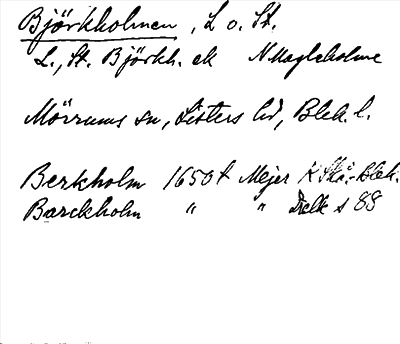 Björkholmen, L o. St.
L., St. Björkh. ek N Magleholme
Mörrums sn, Listers hd, Blek. l.
Berkholm 1650t Mejer K Skå.-Blek.
Barckholm " " Delk s 88